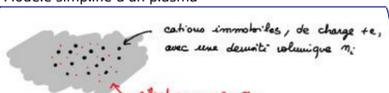 Modèle simplifié d'un plasma
cations immobiles, de charge +e,
avec une densité volumique nᵢ